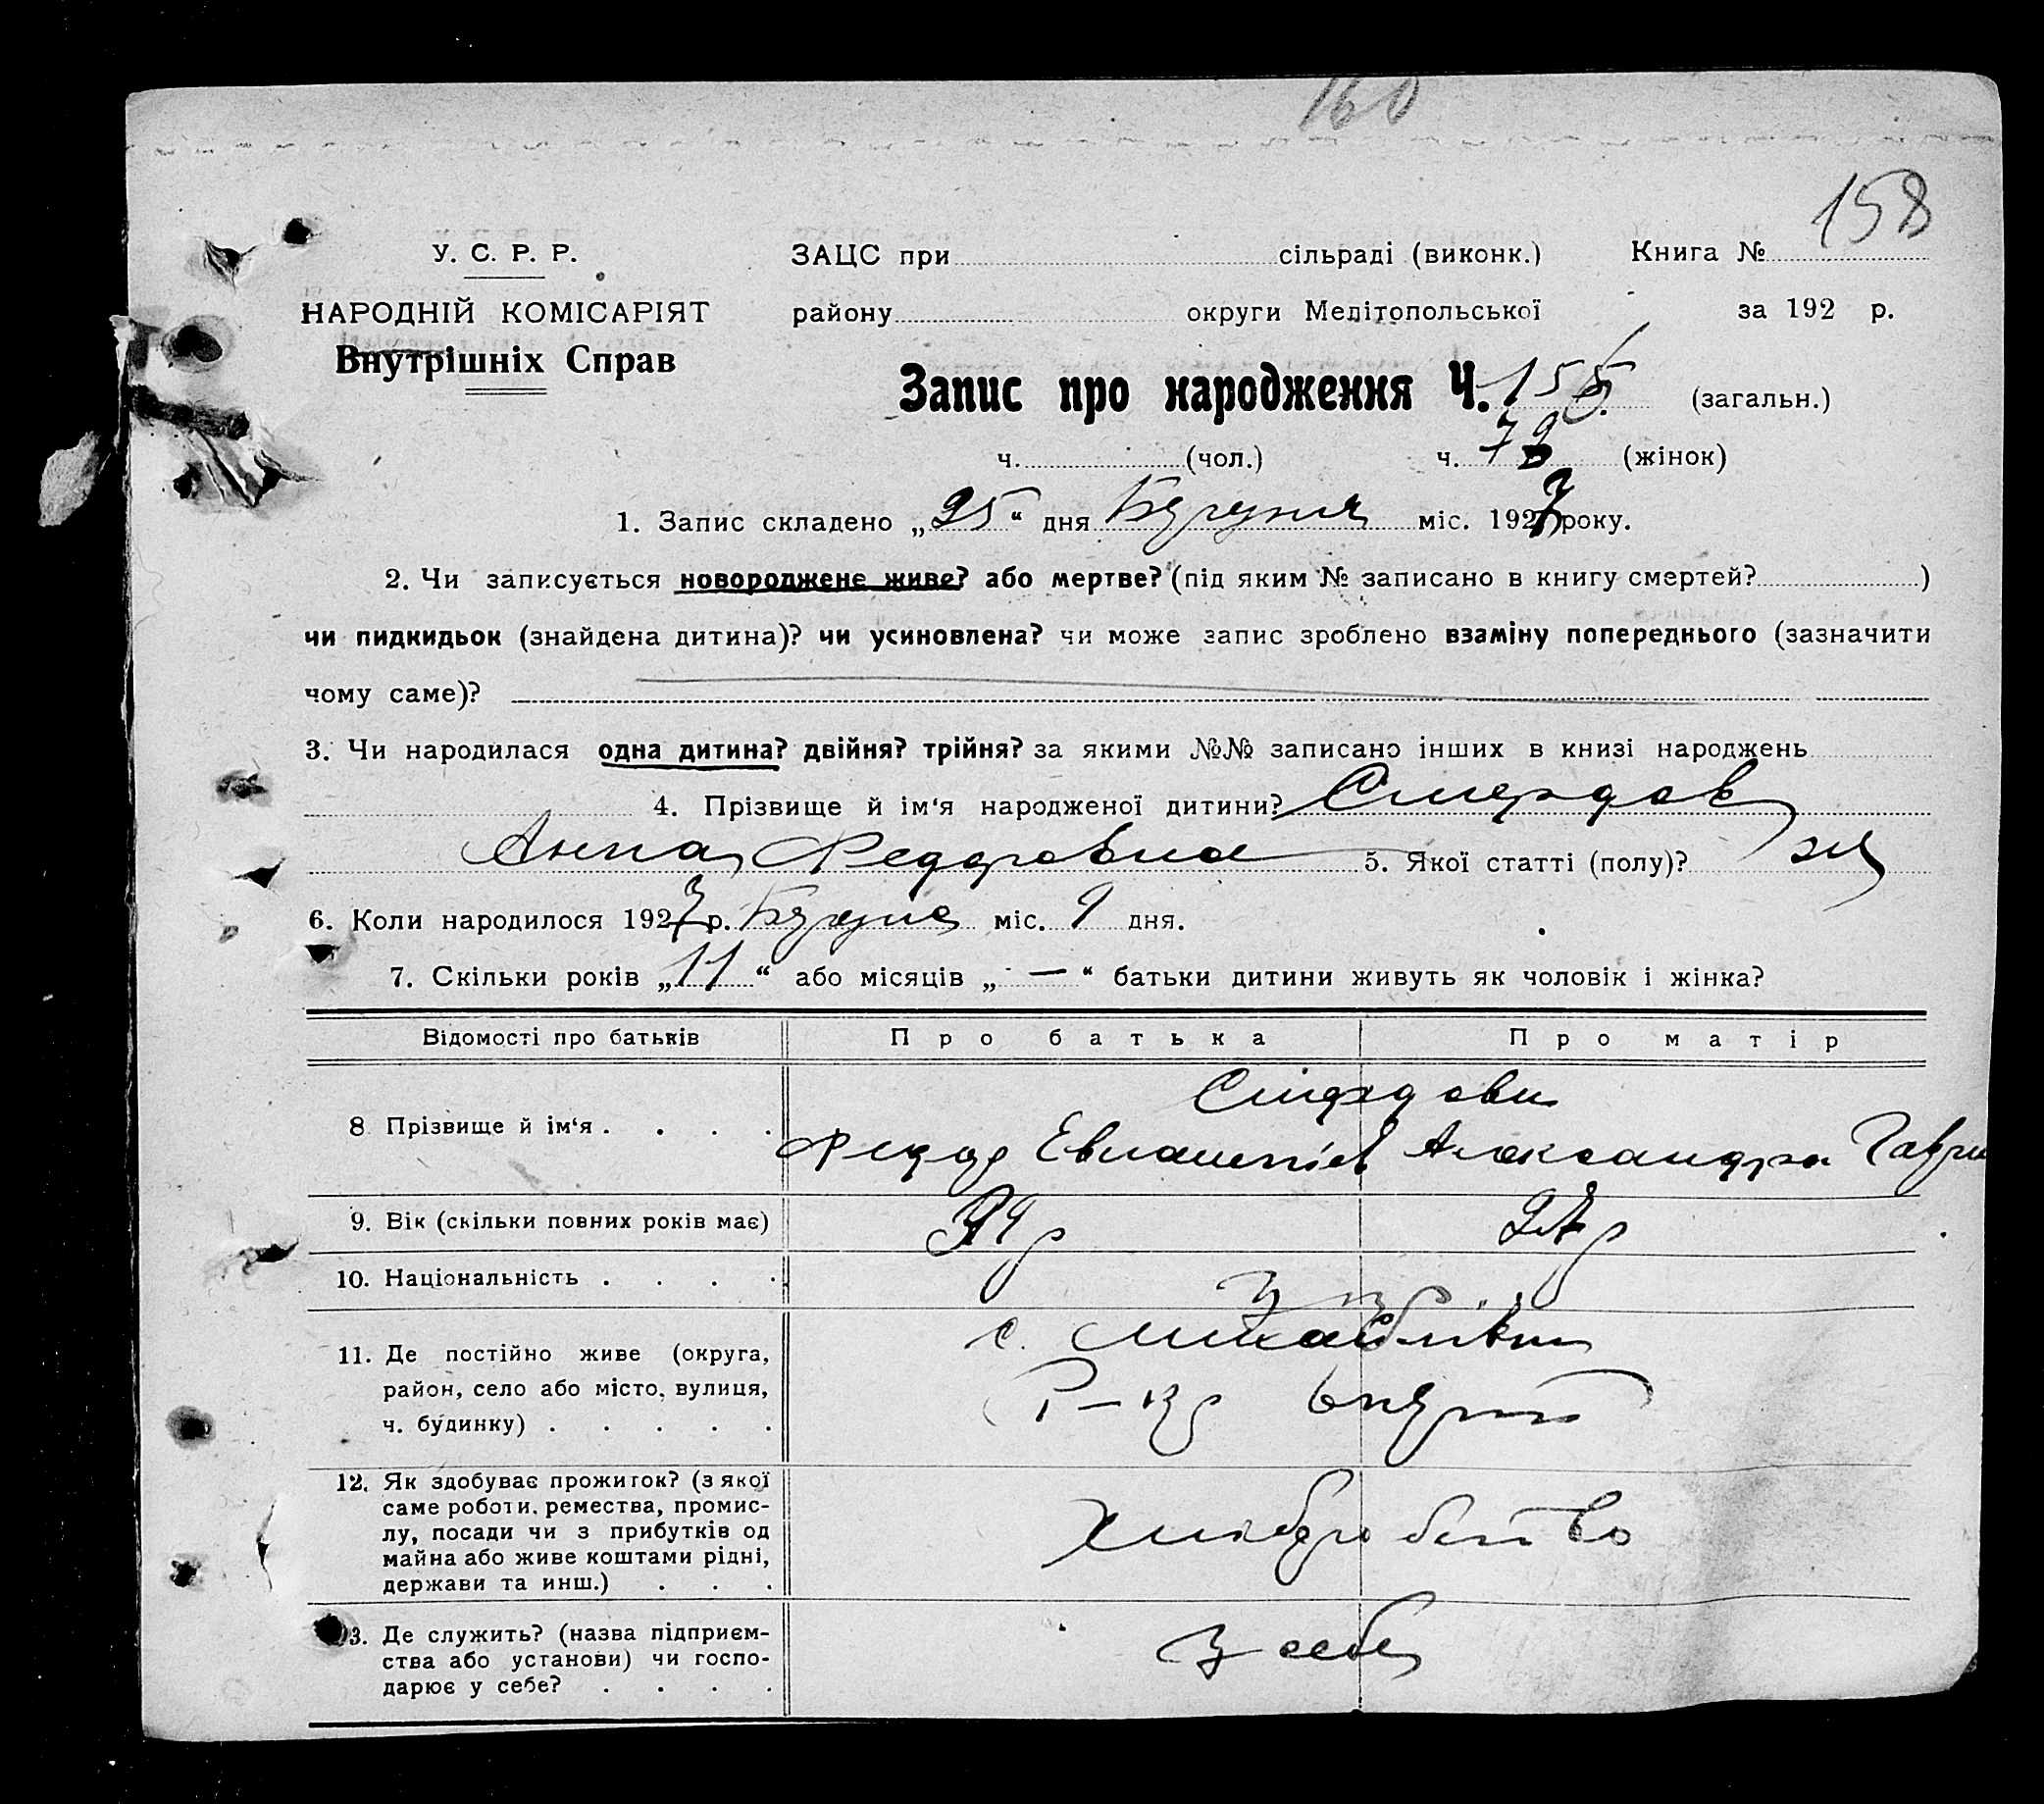 160
158
У. С. Р. Р.
ЗАЦС при сільраді (виконк.)
Книга №
НАРОДНІЙ КОМІСАРІЯТ
району округи Мелітопольської
за 192 р.
Внутрішніх Справ
Запис про народження Ч. 155 (загальн.)
ч. (чол.) ч. 73 (жінок)
1. Запис складено „25“ дня міс. 1927 року.
2. Чи записується новороджене живе? або мертве? (під яким № записано в книгу смертей? )
чи пидкидьок (знайдена дитина)? чи усиновлена? чи може запис зроблено взаміну попереднього (зазначити
чому саме)?
3. Чи народилася одна дитина? двійня? трійня? за якими №№ записано інших в книзі народжень
4. Прізвище й ім‘я народженої дитини?
Анна Федоровна 5. Якої статті (полу)? ж
6. Коли народилося 1927 р. міс. 9 дня.
7. Скільки років „11“ або місяців „—“ батьки дитини живуть як чоловік і жінка?
Відомості про батьків Про батька Про матір
8 Прізвище й ім‘я . . . .
Федор Александра Гаври
9. Вік (скільки повних років має)
10. Національність . . . . Укр.
11. Де постійно живе (округа,
район, село або місто, вулиця,
ч. будинку) . . . . .
с. Михайлівка
12. Як здобуває прожиток? (з якої
саме роботи, ремества, промис-
лу, посади чи з прибутків од
майна або живе коштами рідні,
держави та инш.) . . .
Хліборобство
13. Де служить? (назва підприєм-
ства або установи) чи госпо-
дарює у себе? . . . .
У себе